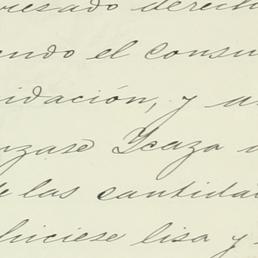 resado derech
endo el consu
idación, y a
nzase Ycaza
las cantidad
hiciese lisa y